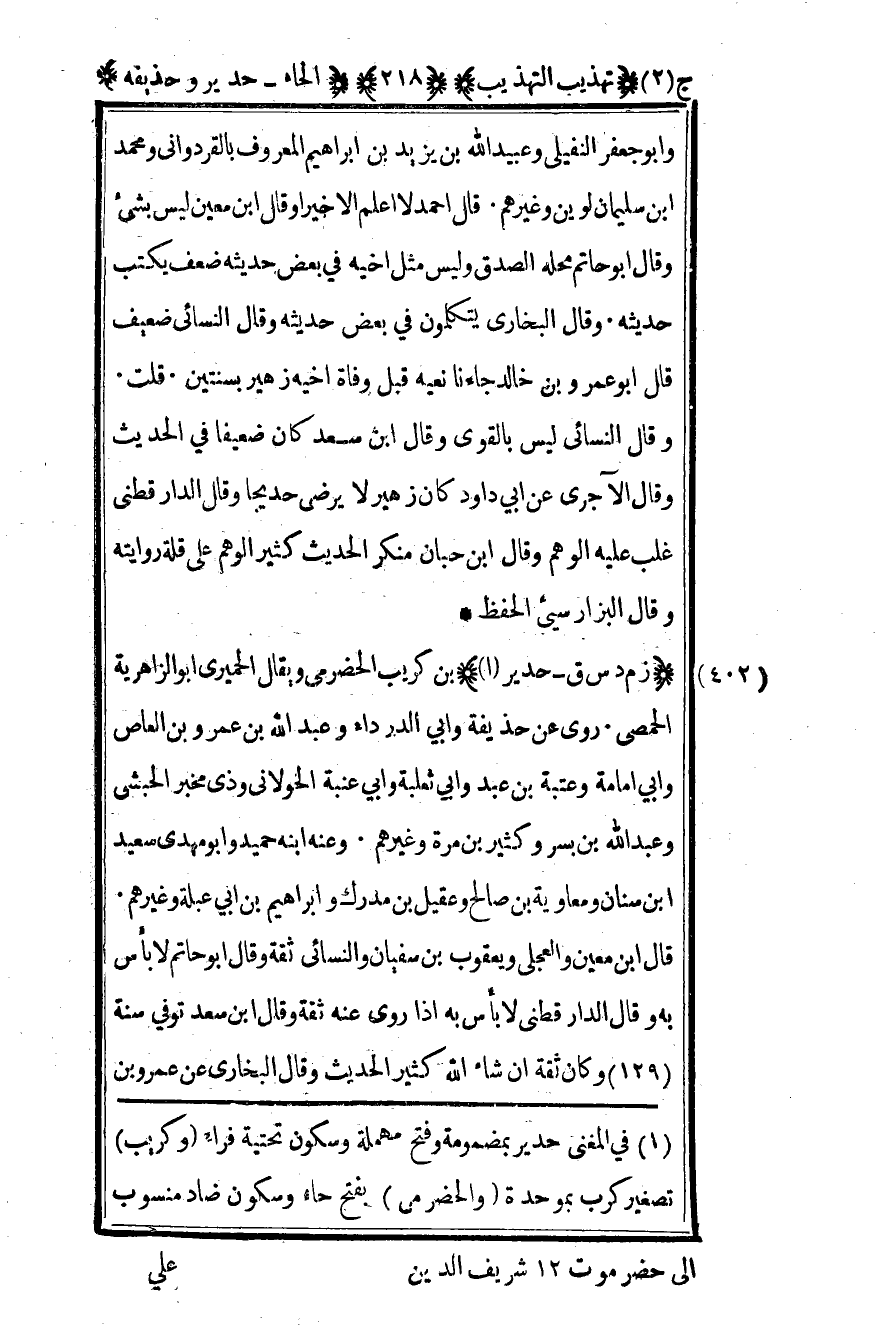 ج(٢) ﴿تهذيب التهذيب﴾ ﴿٢١٨﴾ ﴿الحاء ـ حدير و حذيفه﴾
وابوجعفر النفيلى وعبيدالله بن يزيد بن ابراهيم المعروف بالقردوانى ومحمد
ابن سليمان لوين وغيرهم · قال احمد لا اعلم الا خيرا وقال ابن معين ليس بشئ
وقال ابو حاتم محله الصدق وليس مثل اخيه في بعض حديثه ضعف يكتب
حديثه · وقال البخارى يتكلمون في بعض حديثه وقال النسائى ضعيف
قال ابو عمر و بن خالد جاءنا نعيه قبل وفاة اخيه زهير بسنتين · قلت ·
و قال النسائى ليس بالقوى وقال ابن سعد كان ضعيفا في الحديث
وقال الآجرى عن ابي داود كان زهير لا يرضى حديجا وقال الدار قطنى
غلب عليه الوهم وقال ابن حبان منكر الحديث كثير الوهم على قلة روايته
و قال البزار سيئ الحفظ *
(٤٠٢) ﴿ز م د س ق ـ حدير (١)﴾ بن كريب الحضرمي ويقال الحميرى ابوالزاهرية
الحمصى · روى عن حذيفة وابي الدرداء و عبد الله بن عمر و بن العاص
وابي امامة وعتبة بن عبد وابي ثعلبة وابي عنبة الخولانى وذى مخبر الحبشى
وعبدالله بن بسر و كثير بن مرة وغيرهم · وعنه ابنه حميد وابو مهدى سعيد
ابن سنان ومعاوية بن صالح وعقيل بن مدرك و ابراهيم بن ابي عبلة وغيرهم ·
قال ابن معين والعجلى ويعقوب بن سفيان والنسائى ثقة وقال ابو حاتم لا بأس
به و قال الدار قطنى لا بأس به اذا روى عنه ثقة وقال ابن سعد توفي سنة
(١٢٩) وكان ثقة ان شاء الله كثير الحديث وقال البخارى عن عمرو بن
(١) في المغنى حدير بمضمومة وفتح مهملة وسكون تحتية فراء (وكريب)
تصغير كرب بموحدة (والحضرمى) بفتح حاء وسكون ضاد منسوب
الى حضر موت ١٢ شريف الدين
علي